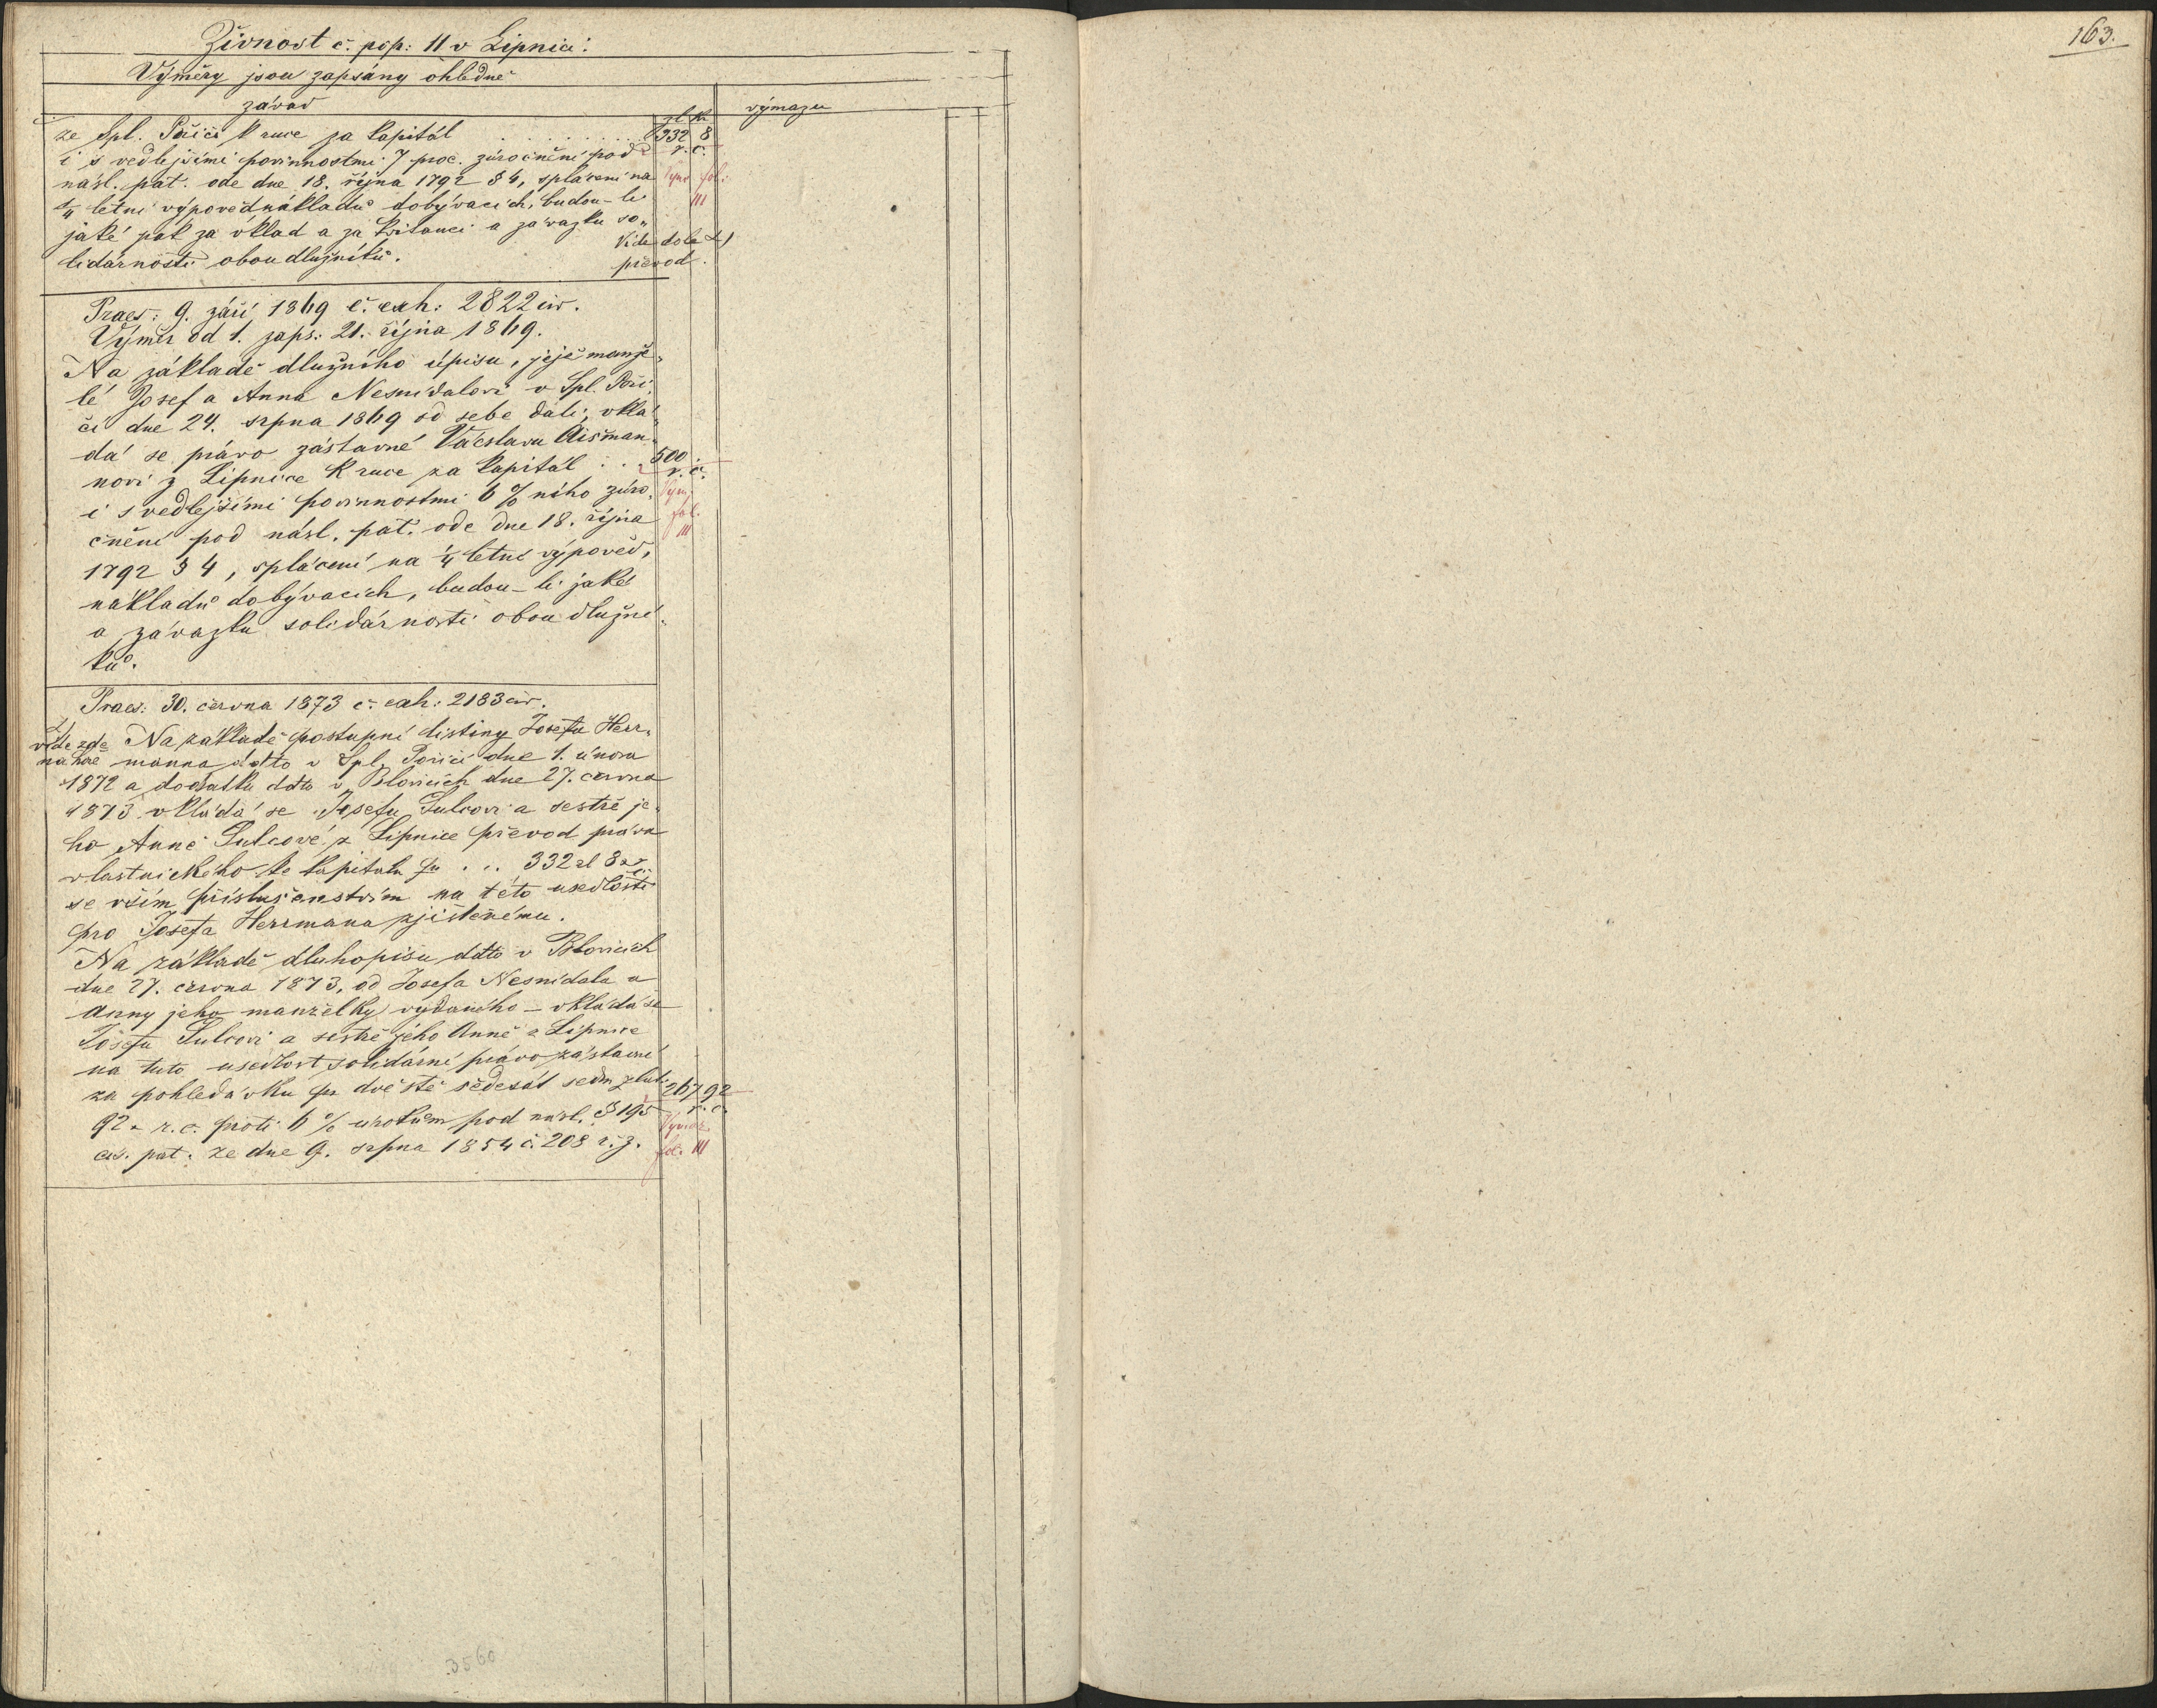 163.
Živnost č. pop: 11 v Lipnici.
Výměry jsou zapsány ohledně
závad
výmazu
zl kr
ze Spl. Poříčí k ruce za kapitál . . . . . . . . . 332 8
i s vedlejšími povinnostmi 7 proc. zúročnění pod r. č.
násl. pat. ode dne 18. října 1792 § 4, splacení na Vym fol.
1/4 létní výpověď nákladů dobývacích, budou-li III
jaké pak za vklad a za kvitanci a závazku so„
Vide dole
lidárnosti obou dlužníků. převod.
Praes: 9. září 1869 č. exh: 2822 civ.
Výměr od 1. zaps: 21. října 1869.
Na základě dlužního úpisu, jejž manže„
lé Josef a Anna Nesnídalovi v Spl. Poří„
čí dne 24. srpna 1869 od sebe dali, vklá„
dá se právo zástavné Václavu Aišman„
novi z Lipnice k ruce za kapitál . . 500
r. č.
i s vedlejšími povinnostmi 6 % ního zúro„ Vym.
čnění pod násl. pat. ode dne 18. října fol.
III
1792 § 4, splácení na 1/4 letní výpověď,
nákladů dobývacích, budou-li jaké
a závazku solidárnosti obou dlužní„
ků.
Praes: 30. června 1873 č. exh: 2183 civ.
vide zde Na základě postupní listiny Josefa Herr„
nahoře manna ddto v Spl. Poříčí dne 1. února
1872 a dodatku ddto v Blovicích dne 27. června
1873 vkládá se Josefu Šulcovi a sestře je„
ho Anně Šulcové z Lipnice převod práva
vlastnického ke kapitalu pr . . . 332 zl 8 kr
se vším příslušenstvím na této usedlosti
pro Josefa Herrmana zjištěnému.
Na základě dluhopisu ddto v Blovicích
dne 27. června 1873, od Josefa Nesnídala a
Anny jeho manželky vydaného – vkládá se
Josefu Šulcovi a sestře jeho Anně z Lipnice
na tuto usedlost solidární právo zástavní
za pohledávku pr dvě stě šedesát sedm zlat. 267 92
92 x r. č. proti 6 % úrokům pod násl. § 195 r. č.
cís. pat. ze dne 9. srpna 1854 č. 208 ř. z. fol. III
3560